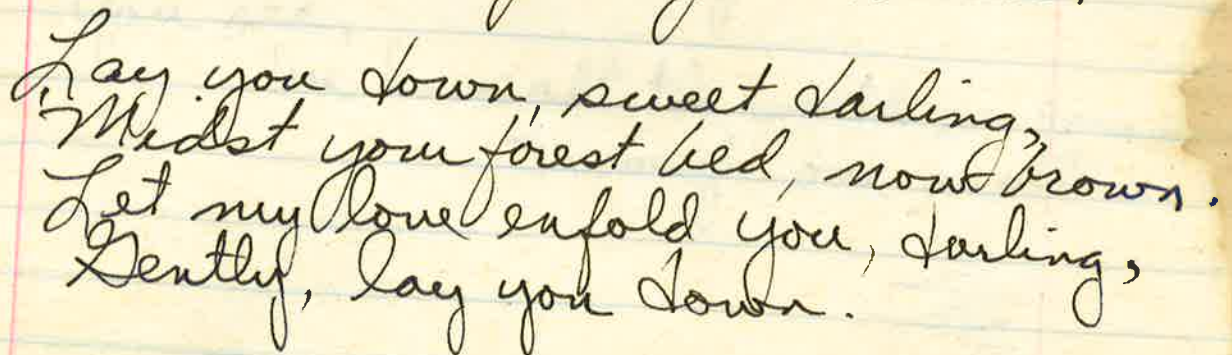 Lay you down, sweet darling,
Midst your forest bed, now brown.
Let my love enfold you, darling,
Gently, lay you down.